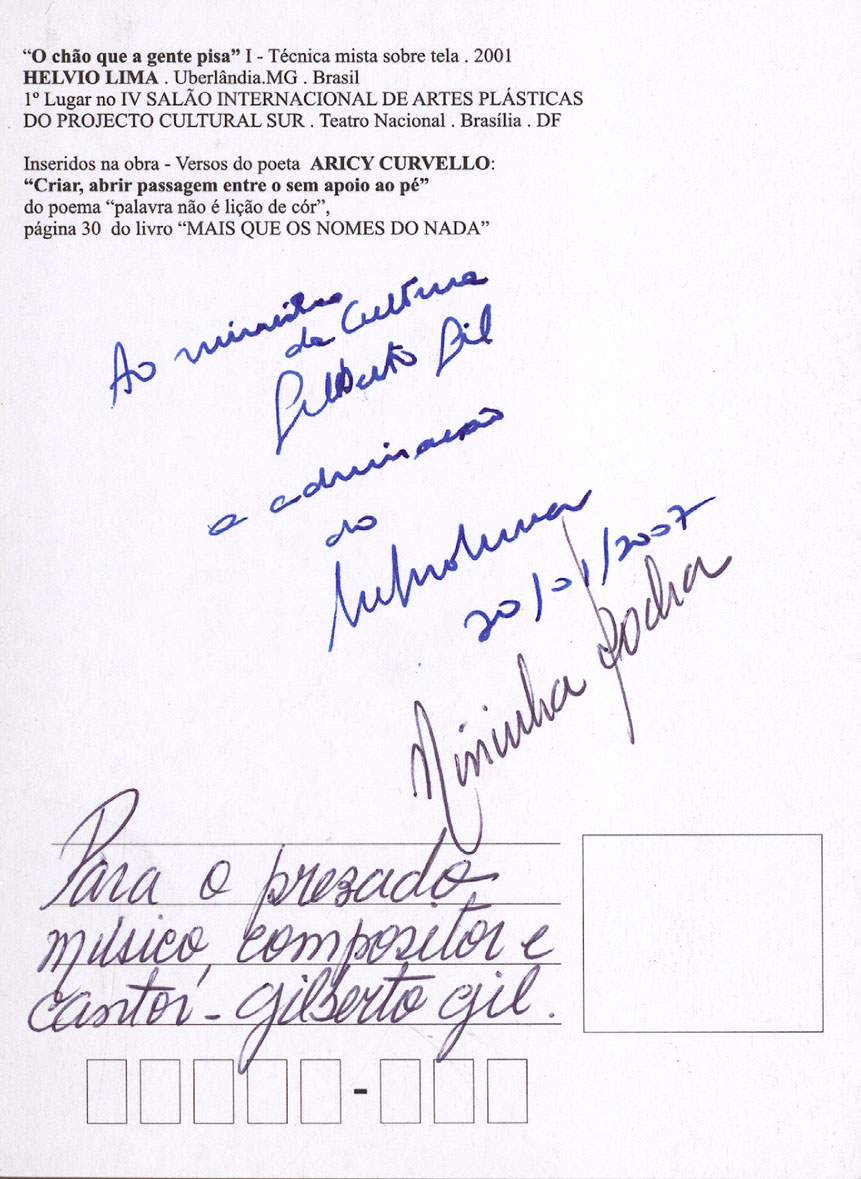 “O chão que a gente pisa” I - Técnica mista sobre tela . 2001
HELVIO LIMA . Uberlândia.MG . Brasil
1º Lugar no IV SALÃO INTERNACIONAL DE ARTES PLÁSTICAS
DO PROJECTO CULTURAL SUR . Teatro Nacional . Brasília . DF
Inseridos na obra - Versos do poeta ARICY CURVELLO:
“Criar, abrir passagem entre o sem apoio ao pé”
do poema “palavra não é lição de cór”,
página 30 do livro “MAIS QUE OS NOMES DO NADA”
Ao ministro
da Cultura
Gilberto Gil
a admiração
do
20/01/2007
Nininha Rocha
Para o prezado
músico, compositor e
cantor - Gilberto Gil.
-